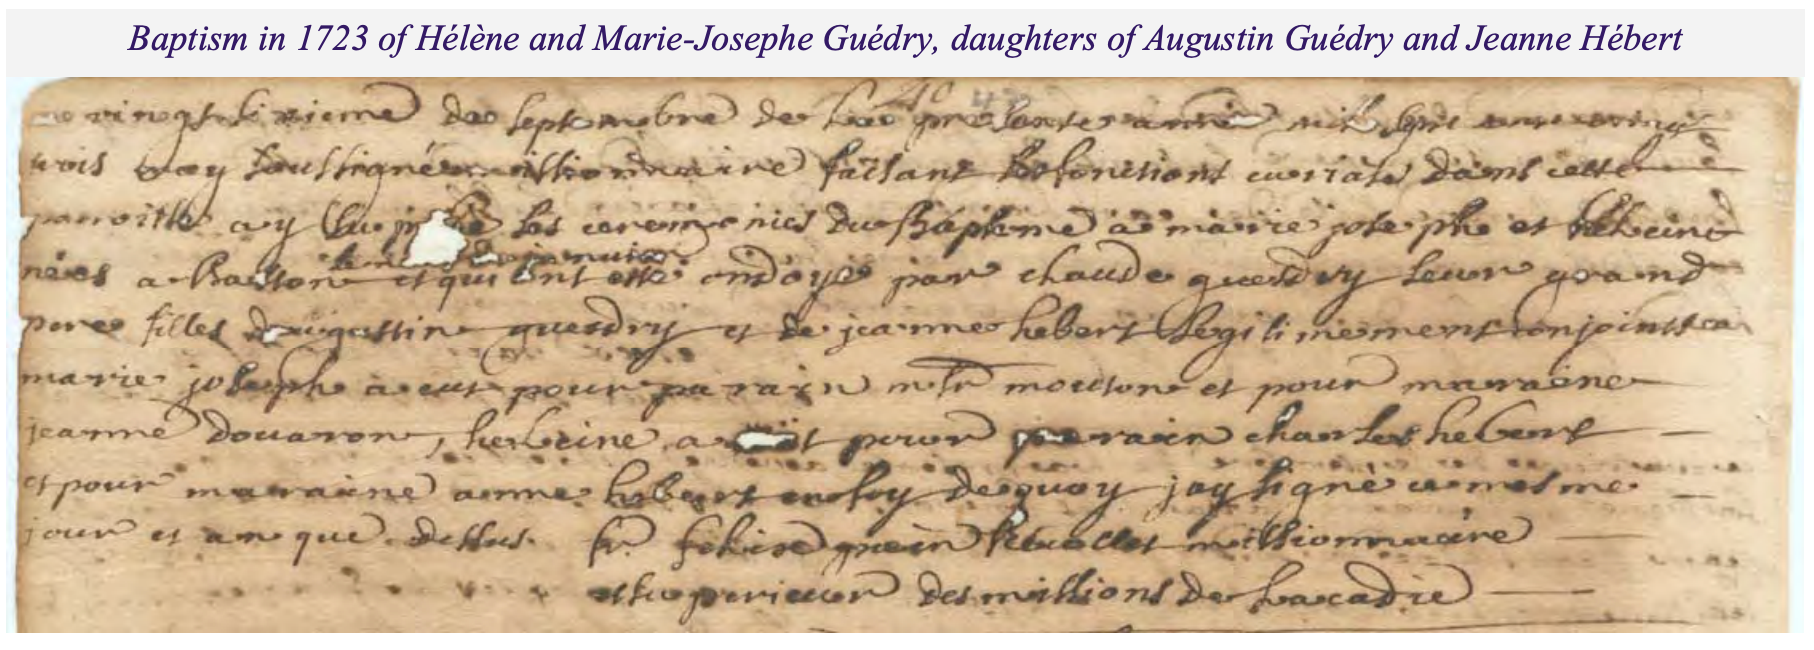 Baptism in 1723 of Hélène and Marie-Josephe Guédry, daughters of Augustin Guédry and Jeanne Hébert
vingt sixieme de septembre de la presente année mil sept
trois moy soussigné missionnaire faisant les fonctions curiales dans cette
parroisse ay les ceremonies du Bapteme a marie josephe et heleine
nées a Baston et qui ont etté ondoyé par claude guesdry leur grand
pere filles daugustin guesdry et de jeanne hebert legitimement conjoints
marie josephe a eut pour parain moutone et pour maraine
jeanne douaron, heleine a pour parain charles hebert
et pour maraine anne hebert en foy de quoy jay signé ce mesme
jour et an que dessus fr. missionnaire
et superieur des missions de lacadie